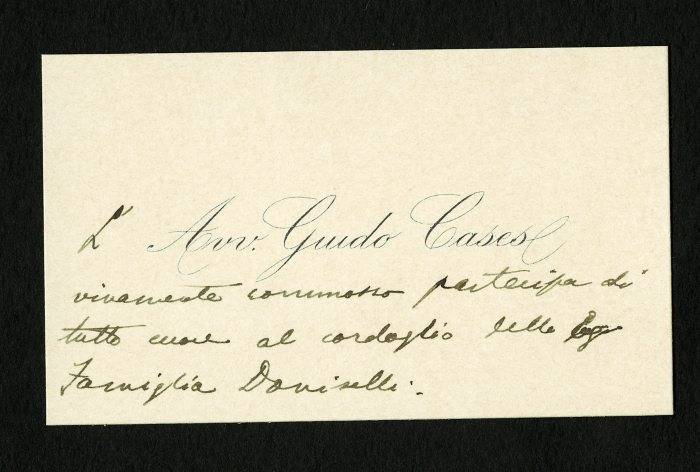 L' Avv. Guido Cases
vivamente commosso partecipa di
tutto cuore al cordoglio della Eg
Famiglia Doniselli.